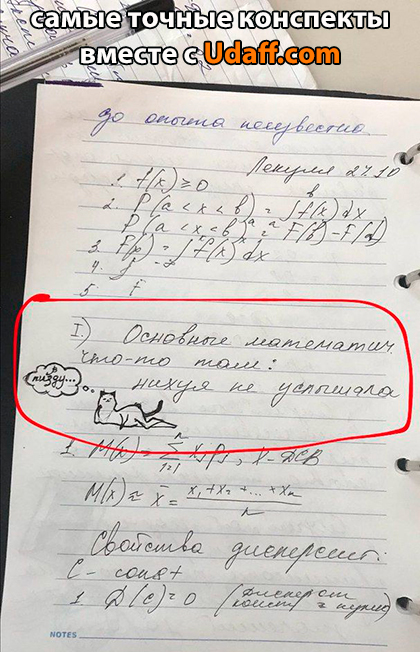 самые точные конспекты
вместе с Udaff.com
до опыта неизвестно
Лекция 27.10
1. f(x) ≥ 0
2. P(a < x < b) = ∫ₐᵇ f(x) dx
P(a < x < b) = F(b) - F(a)
3. F(x) = ∫ f(x) dx
4.
5.
I) Основные математич.
что-то там:
нихуя не услышала
в
пизду...
1. M(x) = ∑ xᵢ pᵢ, x - ДСВ
M(x) ≈ x̄ = x₁ + x₂ + ... + xₙ / n
Свойства дисперсии:
C - const
1. D(c) = 0 (дисперс от
конст = нулю)
NOTES